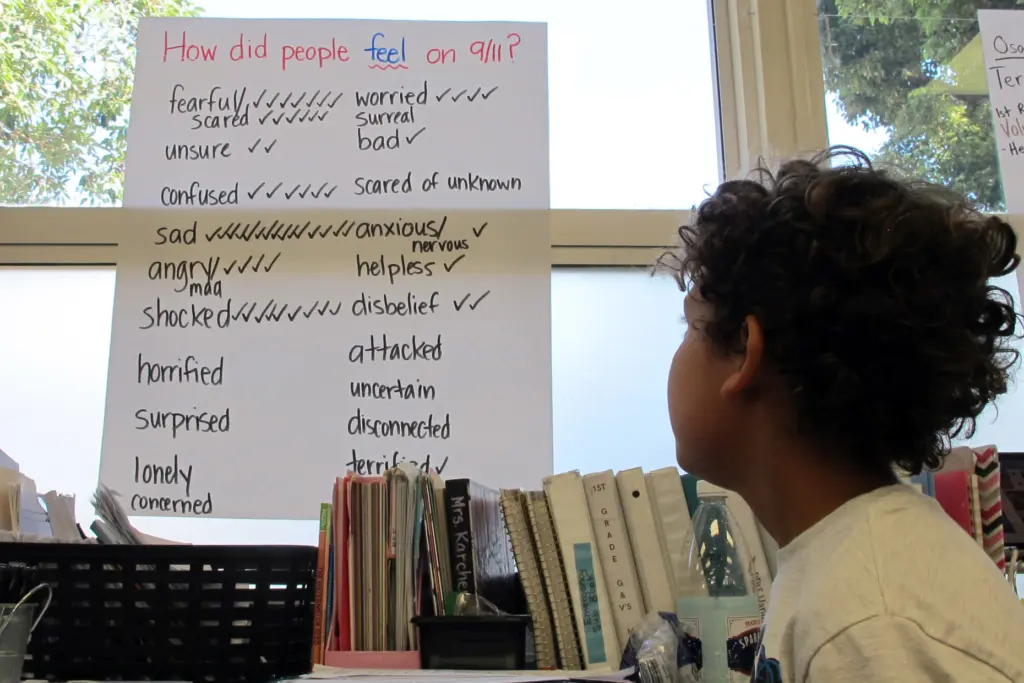 How did people feel on 9/11?
fearful/ ✓✓✓✓✓✓
scared ✓✓✓✓✓
unsure ✓✓
confused ✓✓✓✓✓
sad ✓✓✓✓✓✓✓✓✓✓✓✓
angry/ ✓✓✓✓
mad
shocked ✓✓✓✓✓✓✓✓✓
horrified
surprised
lonely
concerned
worried ✓✓✓✓
surreal
bad ✓
scared of unknown
anxious/ ✓
nervous
helpless ✓
disbelief ✓✓
attacked
uncertain
disconnected
terrified ✓
Mrs. Karche
1ST GRADE G&V'S